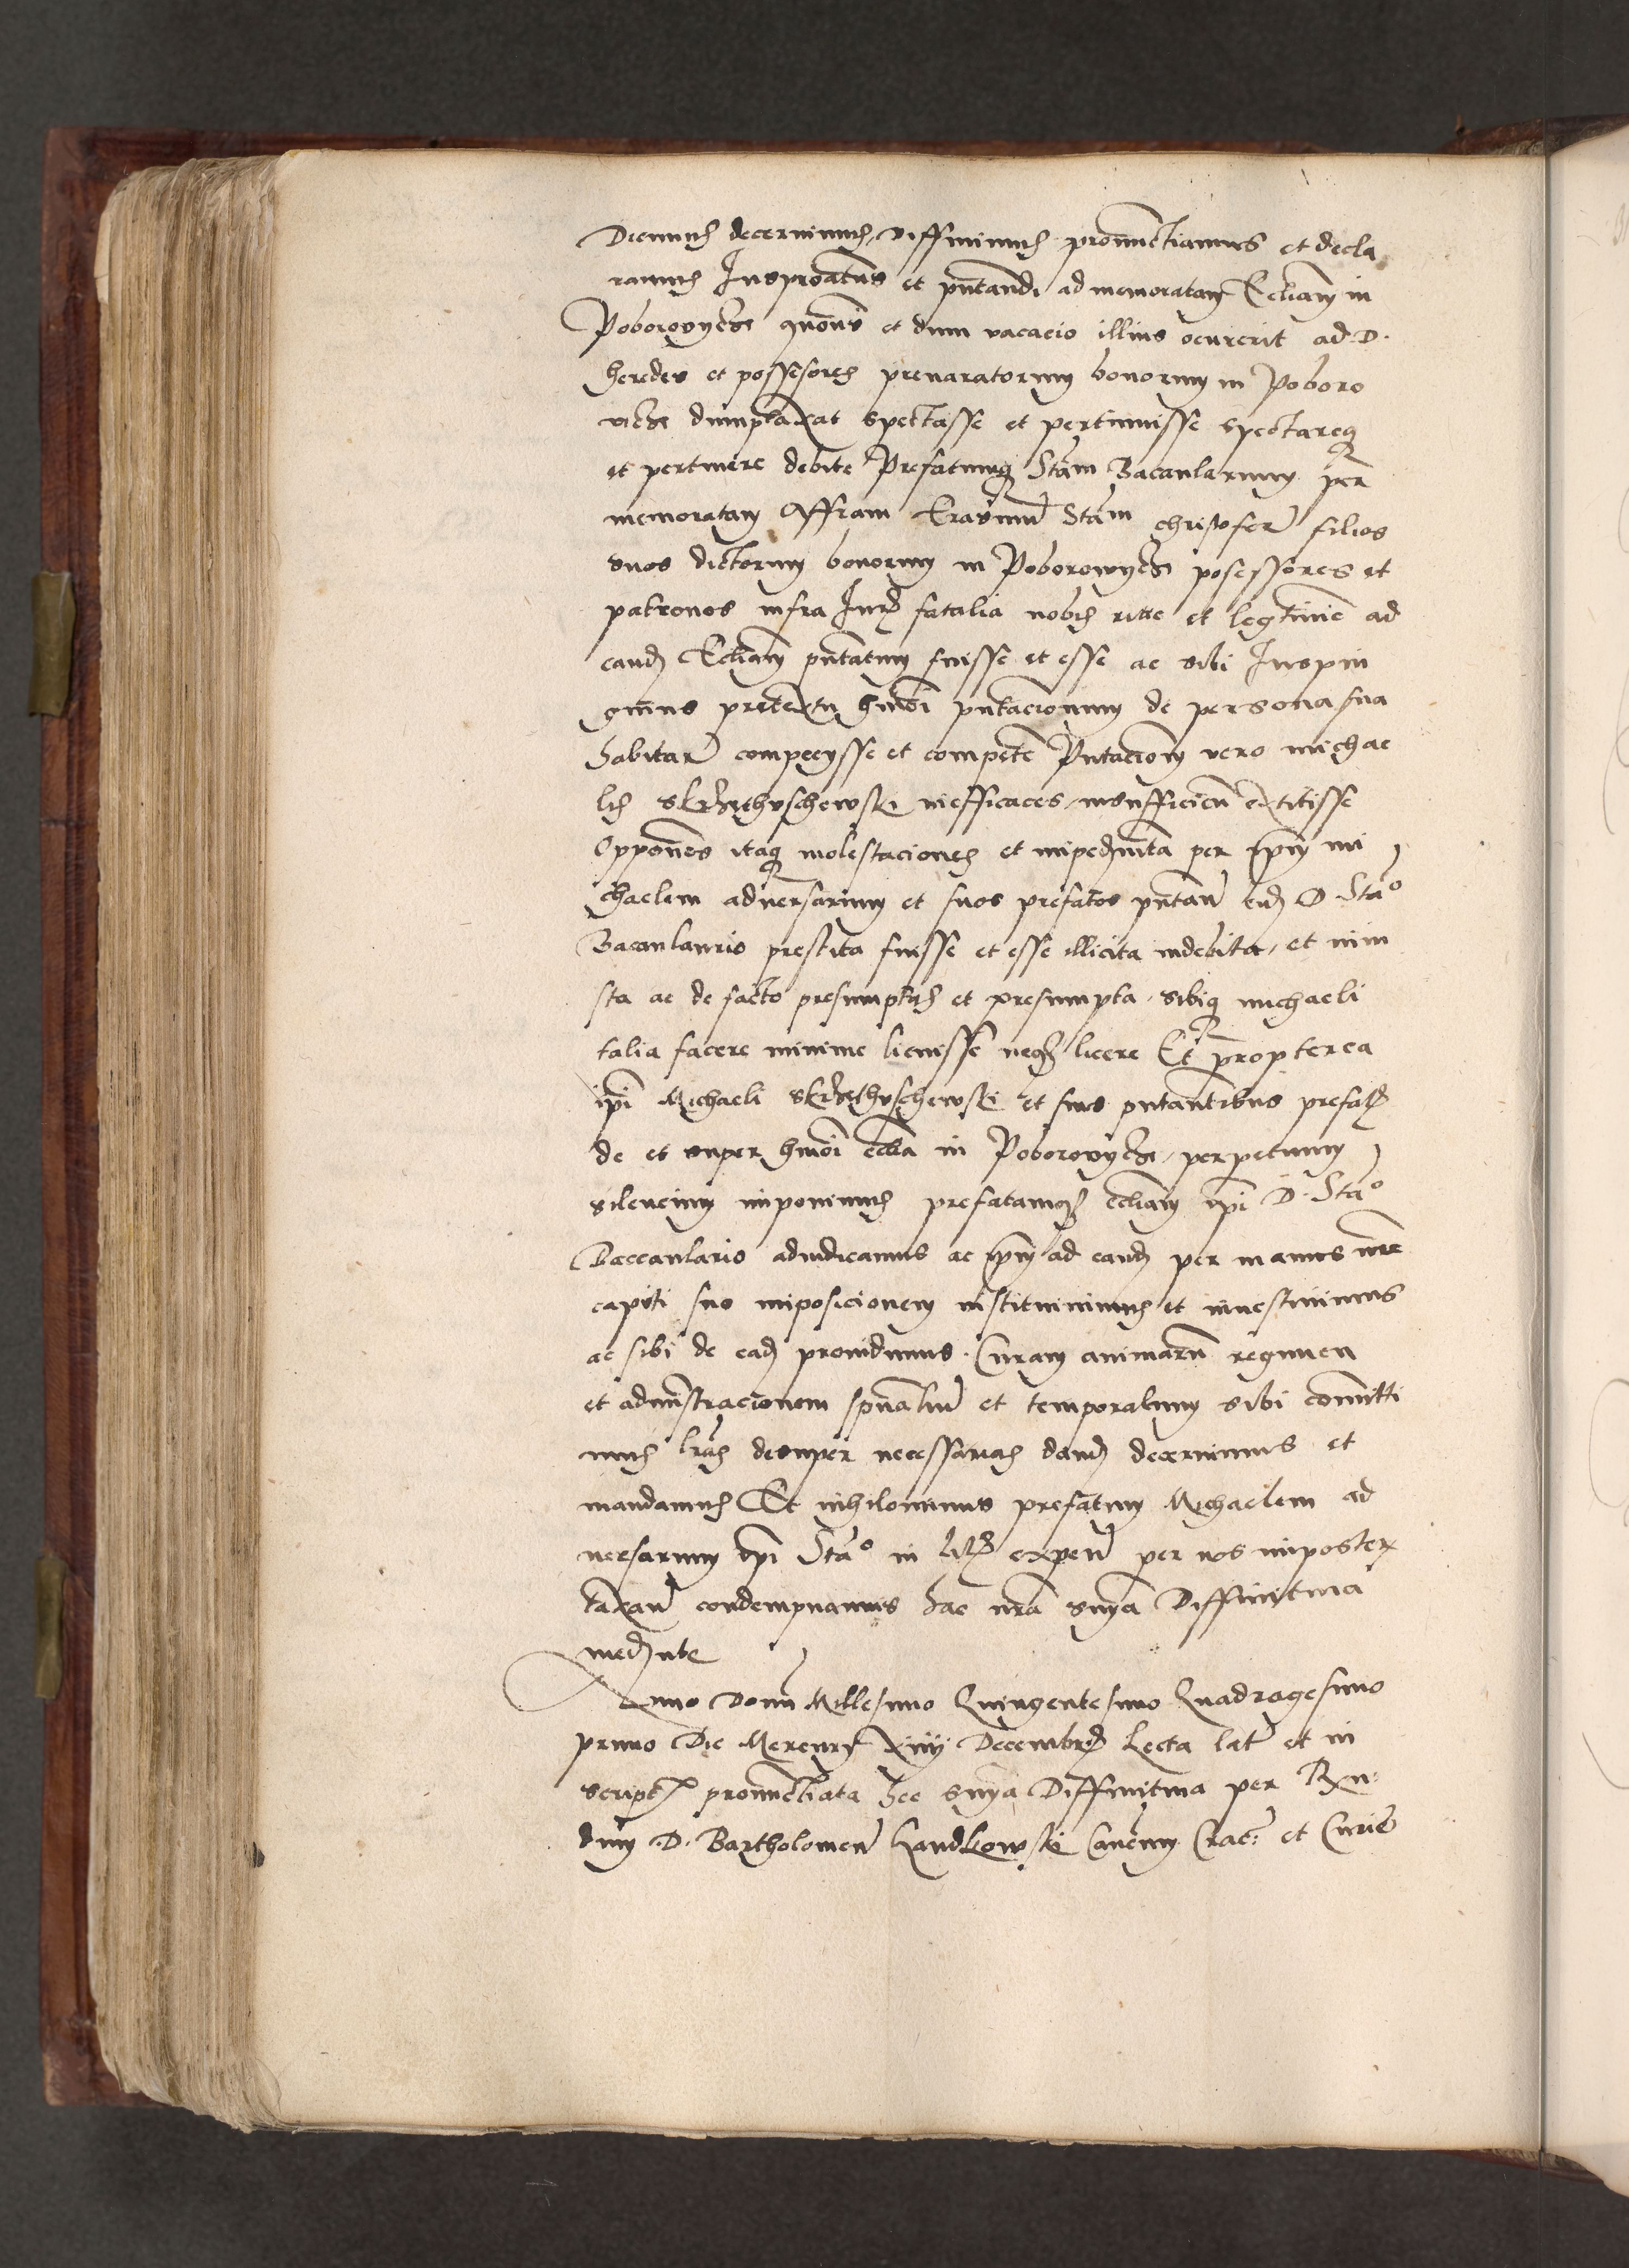 Dicimus decernimus diffinimus pronunctiamus et decla
ramus Juspronatus et pntandi ad memoratam Eccliam in
Poborovycze quocies et dum vacacio illius ocurerit ad D.
heredes et possesores prenaratorum bonorum in Poboro
vicze dumptaxat spectasse et pertinuisse spectareq
et pertinere debite Prefatumq Stam Bacaularium per
memoratam Affram Erasmu Stam christofer filios
suos dictorum bonorum in Poborowycze posessores et
patronos infra Juris fatalia nobis rite et legitime ad
eand Eccliam pntatum fuisse et esse ac sibi Jus pin
guius pretextu hmoi pntacionum de persona sua
habitar compecysse et compete Pntacion vero michae
lis Skrzethuschewski inefficaces insufficien extitisse
Oppones itaq molestaciones et impedimta per ipm mi
chaelem adversarium et suos prefatos pntan eid D Stao
Bacaulaurio prestita fuisse et esse illicita indebita et iniu
sta ac de facto presumptas et presumpta sibiq michaeli
talia facere minime licuisse neq licere Et propterea
ipi Michaeli Skrzethuschewski et suis pntantibus prefatis
de et super hmoi ecclia in Poborovycze perpetuum
silencium imponimus prefatamq eccliam ipi D. Stao
Baccaulario adiudicamus ac ipm ad eand per manus nre
capiti suo imposicionem instituimus et investimus
ac sibi de ead providimus. Curam animaru regimen
et administracionem spualiu et temporalium sibi comitti
mus lras desuper necessarias dand decernimus et
mandamus Et nihilominus prefatum Michaelem ad
versarium ipi Stao in litis expen per nos imposter
taxan condempnamus hac nra snya Diffinitiva
mediante
Anno Domi Millesimo Quingentesimo Quadragesimo
primo Die Mercury xiiij Decembris Lecta lat et in
scriptis pronunctiata hec snya Diffinitiva per Rn
dum D. Bartholomeu Gandkowski Canonicum Crac: et Curie